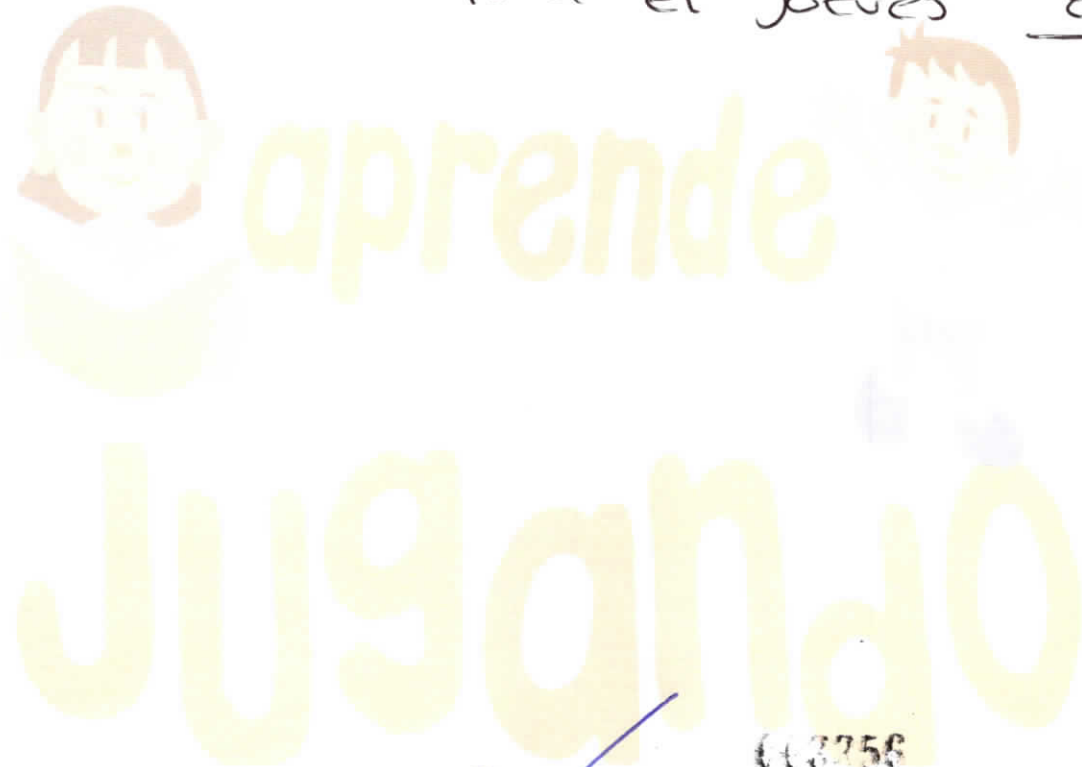 el jueves
aprende
Jugando